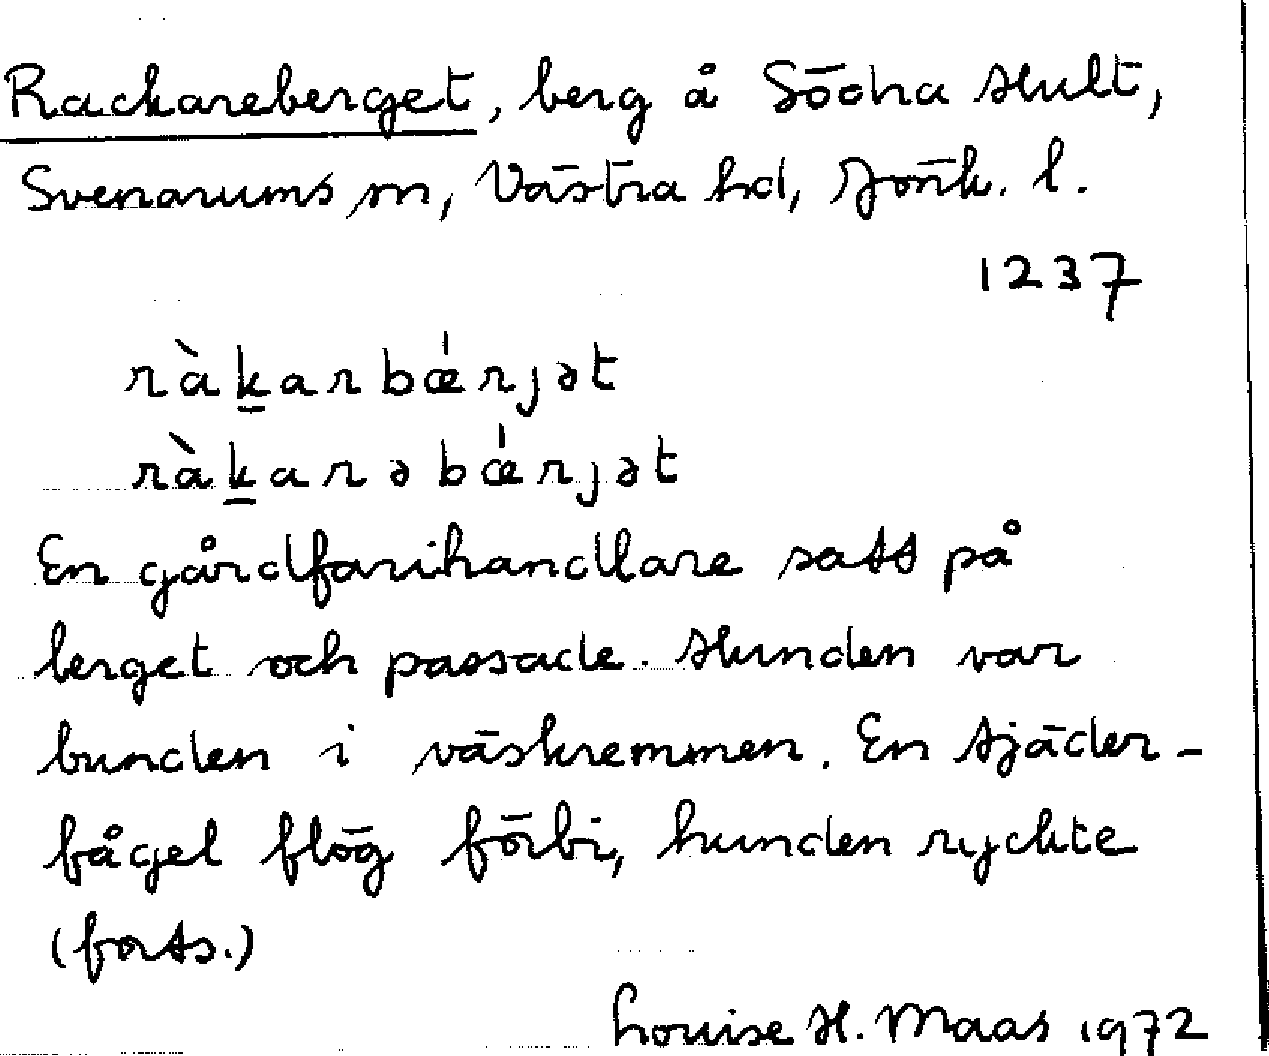 Rackareberget, berg å Södra Hult,
Svenarums sn, Västra hd, Jönk. l.
1237
ràk̲arbǽrjət
ràk̲arəbǽrjət
En gårdfarihandlare satt på
berget och passade. Hunden var
bunden i väskremmen. En tjäder-
fågel flög förbi, hunden ryckte
(forts.)
Louise H. Maas 1972